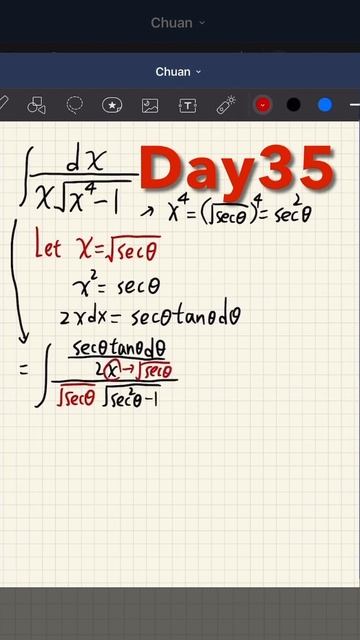 Chuan
Chuan
T
∫ dx / x√x⁴-1
Day35
→ x⁴ = (√secθ)⁴ = sec²θ
Let x = √secθ
x² = secθ
2xdx = secθtanθdθ
= ∫ secθtanθdθ
2x→√secθ
√secθ √sec²θ-1